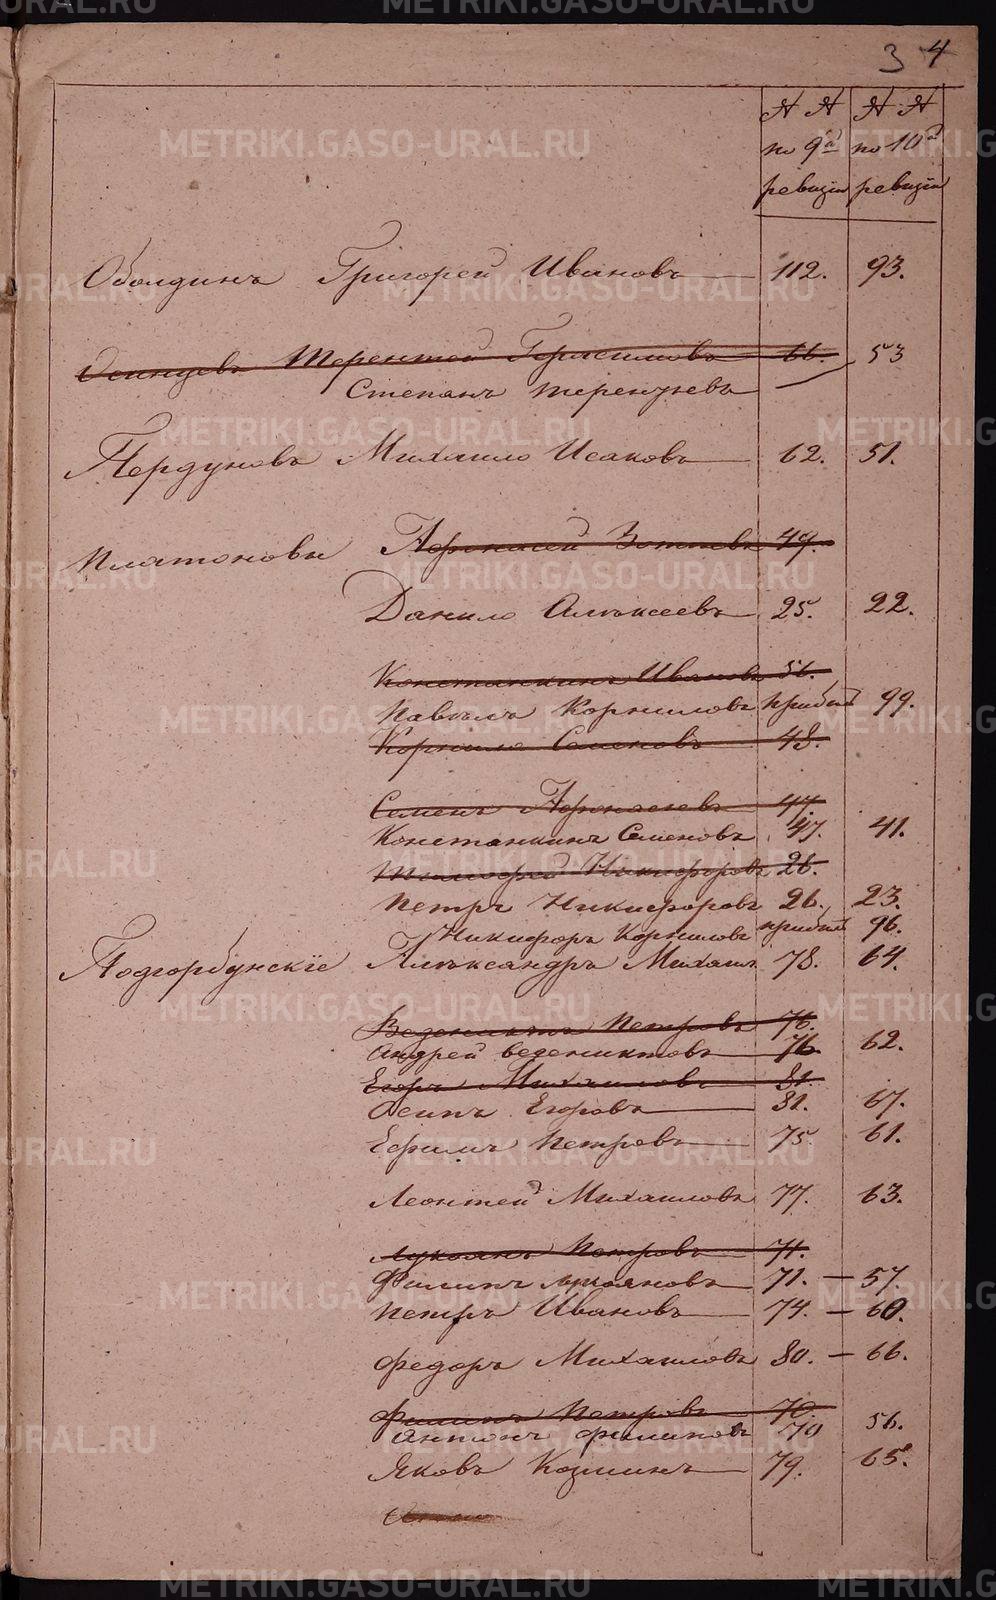 3 4
№ № № №
по 9й по 10й
ревизіи ревизіи
Оболдинъ Григорей Ивановъ 112. 93.
Осинцевъ Терентей Герасимовъ 66. 53
Степанъ Терентьевъ
Пердуновъ Михаило Исаковъ 62. 51.
Платоновы Афонасей Зотеевъ 49.
Данило Алѣксеевъ 25. 22.
Константинъ Ивановъ 56.
Павѣлъ Корниловъ прибыл 99.
Корнило Семеновъ 48.
Семенъ Афонасьевъ 47.
Константинъ Семеновъ 47. 41.
Тимофей Никифоровъ 26.
Петръ Никифоровъ 26. 23.
Никифоръ Корниловъ прибыл 96.
Подгорбунскіе Алѣксандръ Михаил 78. 64.
Веденихтъ Петровъ 76.
Андрей Веденихтовъ 76. 62.
Егоръ Михаиловъ 81.
Осипъ Егоровъ 81. 67.
Ефимъ Петровъ 75. 61.
Леонтей Михаиловъ 77. 63.
Лукоянъ Петровъ 71.
Филипъ Лукояновъ 71. — 57.
Петръ Ивановъ 74. — 60.
Федоръ Михаиловъ 80. — 66.
Филипъ Петровъ 70.
Антонъ Филиповъ 70 56.
Яковъ Козминъ 79. 65.
METRIKI.GASO-URAL.RU